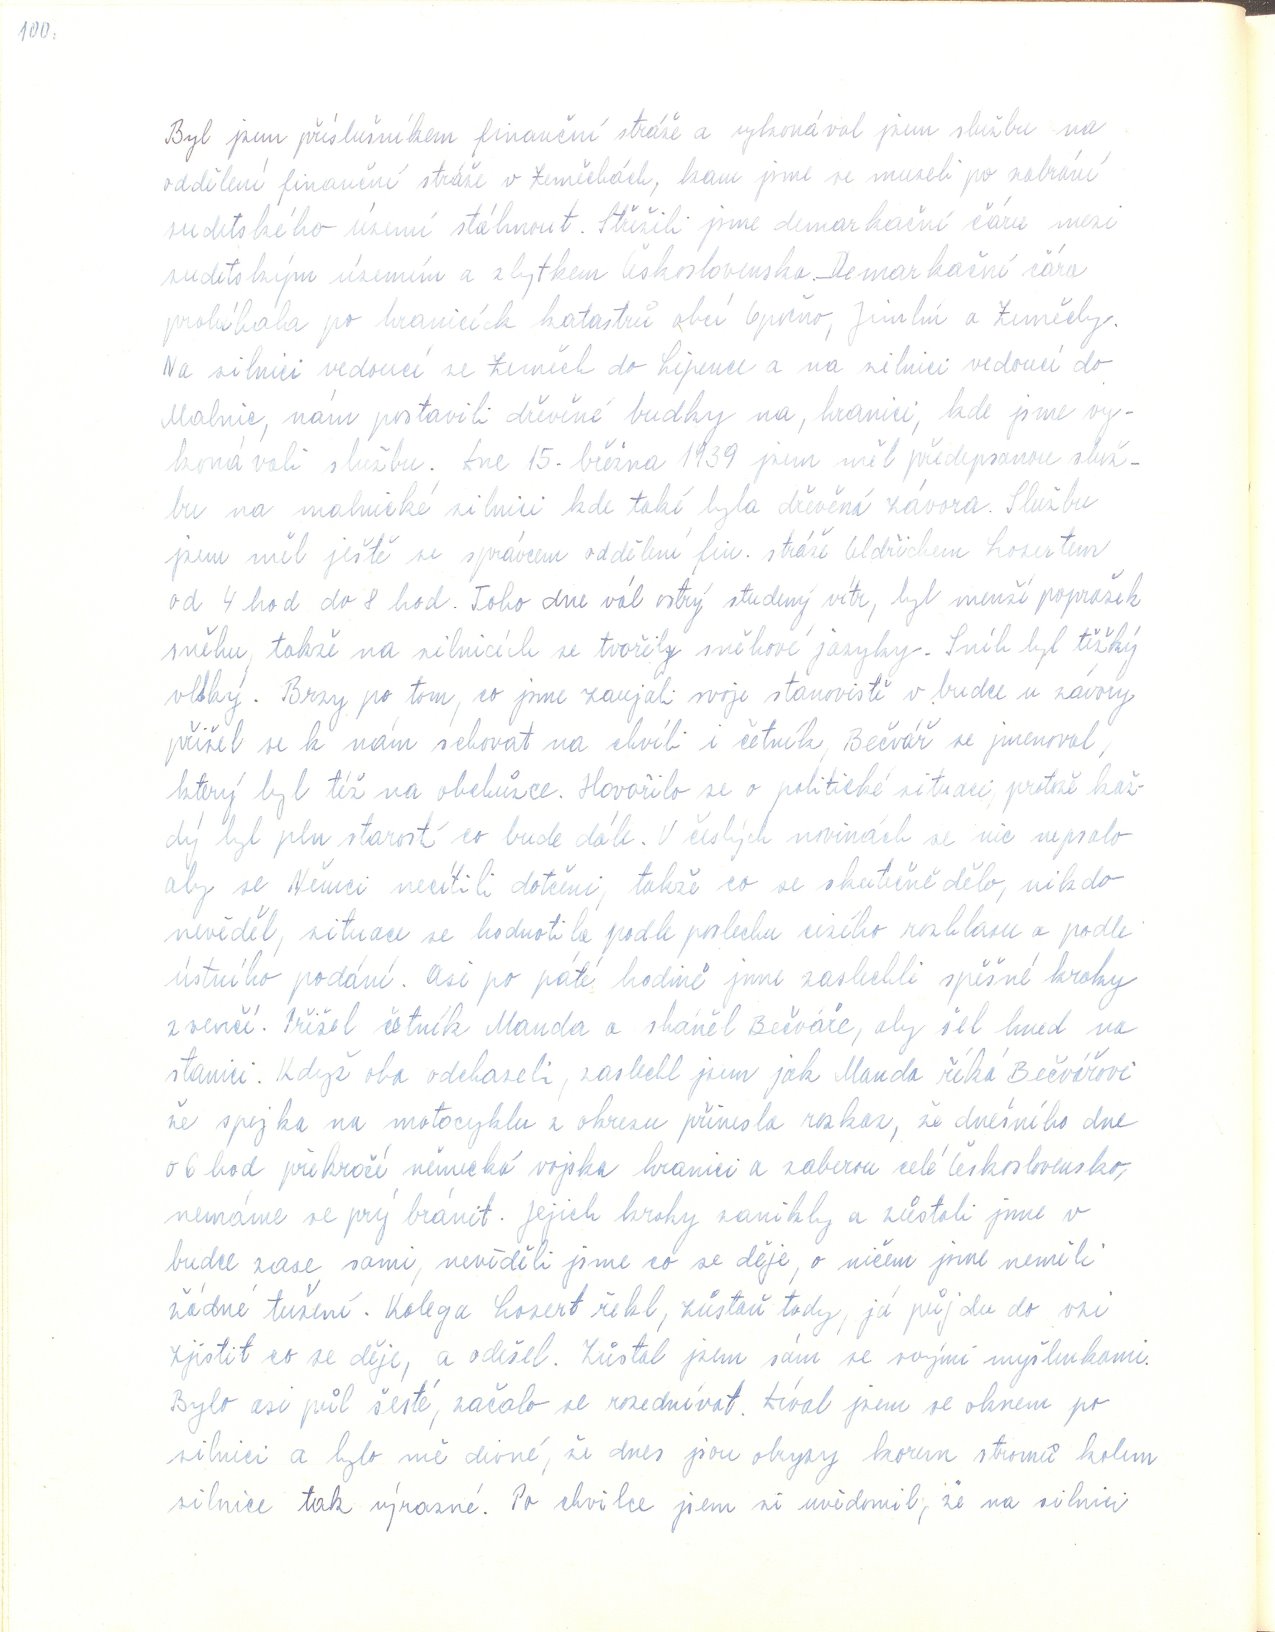 100.
Byl jsem příslušníkem finanční stráže a vykonával jsem službu na
oddělení finanční stráže v Zeměchách, kam jsme se museli po zabrání
sudetského území stáhnout. Střežili jsme demarkační čáru mezi
sudetským územím a zbytkem Československa. Demarkační čára
probíhala po hranicích katastrů obcí Opočno, Jimlín a Zeměchy.
Na silnici vedoucí ze Zeměch do Lipence a na silnici vedoucí do
Malnic, nám postavili dřevěné budky na, hranici, kde jsme vy-
konávali službu. Dne 15. března 1939 jsem měl předepsanou služ-
bu na malnické silnici kde také byla dřevěná závora. Službu
jsem měl ještě se správcem oddělení fin. stráže Oldřichem Losertem
od 4 hod do 8 hod. Toho dne vál ostrý studený vítr, byl menší poprašek
sněhu, takže na silnicích se tvořily sněhové jazyky. Sníh byl těžký
vlhký. Brzy po tom, co jsme zaujali svoje stanoviště v budce u závory
přišel se k nám schovat na chvíli i četník, Bečvář se jmenoval,
který byl též na obchůzce. Hovořilo se o politické situaci, protože kaž-
dý byl pln starostí co bude dále. V českých novinách se nic nepsalo
aby se Němci necítili dotčeni, takže co se skutečně dělo, nikdo
nevěděl, situace se hodnotila podle poslechu cizího rozhlasu a podle
ústního podání. Asi po páté hodině jsme zaslechli spěšné kroky
zvenčí. Přišel četník Manda a sháněl Bečváře, aby šel hned na
stanici. Když oba odcházeli, zaslechl jsem jak Manda říká Bečvářovi
že spojka na motocyklu z okresu přinesla rozkaz, že dnešního dne
o 6 hod překročí německá vojska hranici a zaberou celé Československo,
nemáme se prý bránit. Jejich kroky zanikly a zůstali jsme v
budce zase sami, nevěděli jsme co se děje, o ničem jsme neměli
žádné tušení. Kolega Losert řekl, zůstaň tady, já půjdu do vsi
zjistit co se děje, a odešel. Zůstal jsem sám se svými myšlenkami.
Bylo asi půl šesté, začalo se rozednívat. Díval jsem se oknem po
silnici a bylo mě divné, že dnes jsou obrysy korun stromů kolem
silnice tak výrazné. Po chvilce jsem si uvědomil, že na silnici